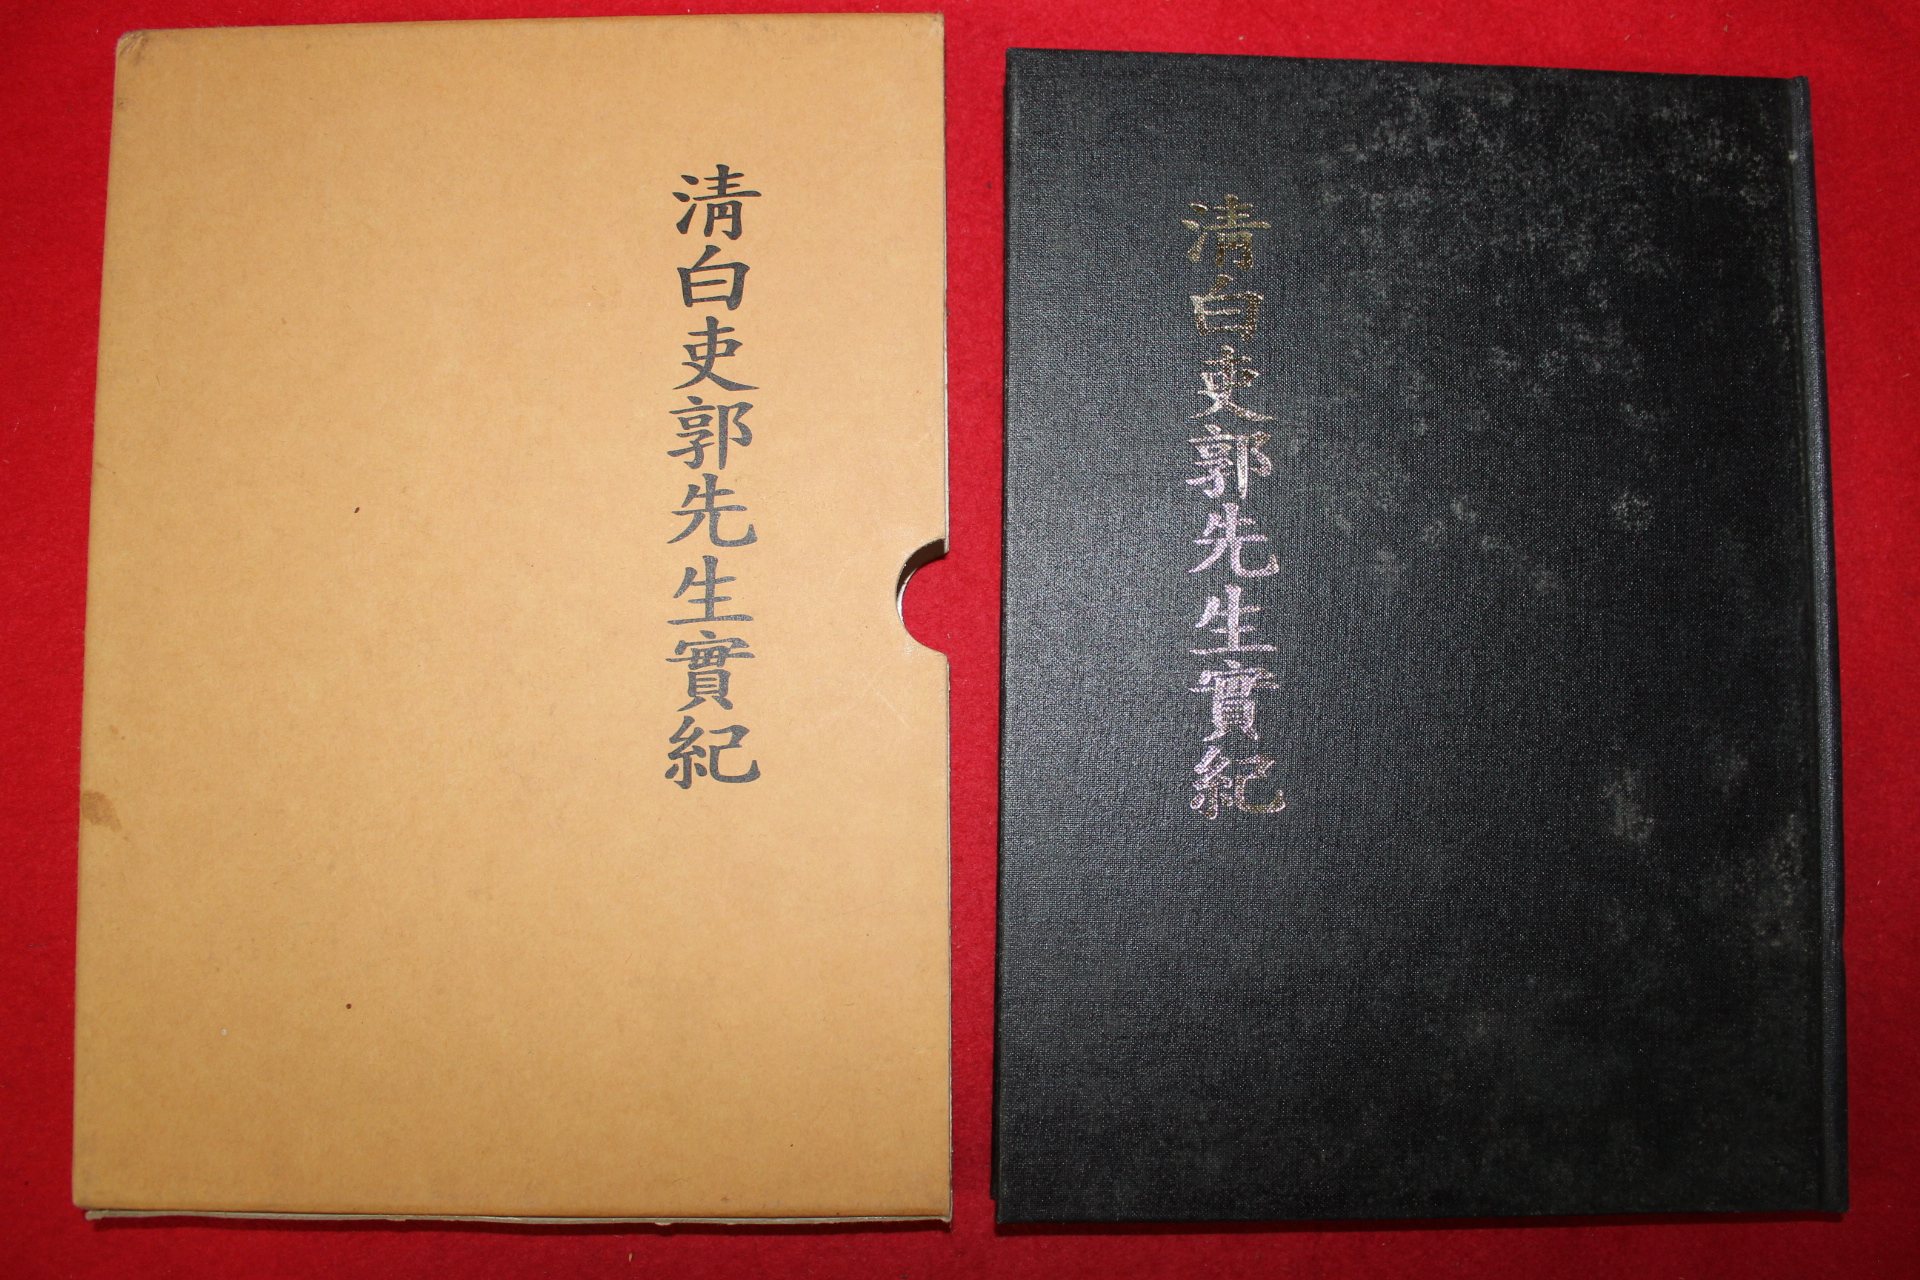 清白吏郭先生實紀
清白吏郭先生實紀